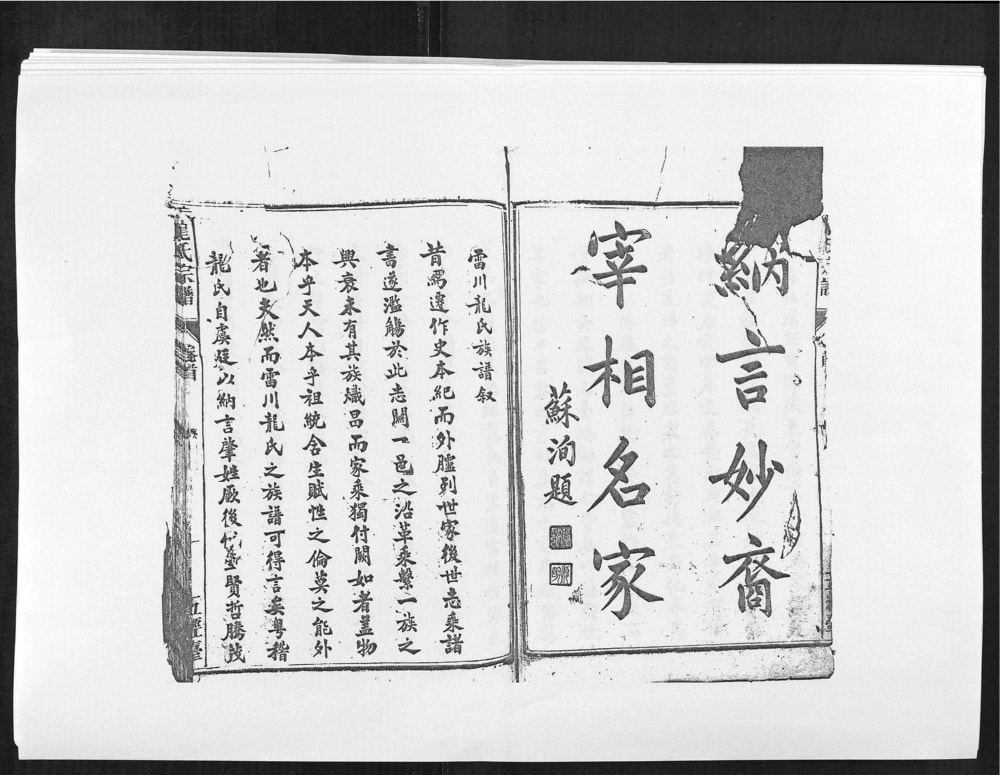 納言妙裔
宰相名家
蘇洵題
雷川龍氏族譜叙
昔馬遷作史本紀而外臚列世家後世志乘諸
書遂濫觴於此志關一邑之沿革乘繫一族之
興衰未有其族熾昌而家乘獨付闕如者蓋物
本乎天人本乎祖統含生賦性之倫莫之能外
者也夫然而雷川龍氏之族譜可得言矣粵稽
龍氏自虞廷以納言肇姓厥後代毓賢哲騰茂
龍氏宗譜
卷首
五經臺